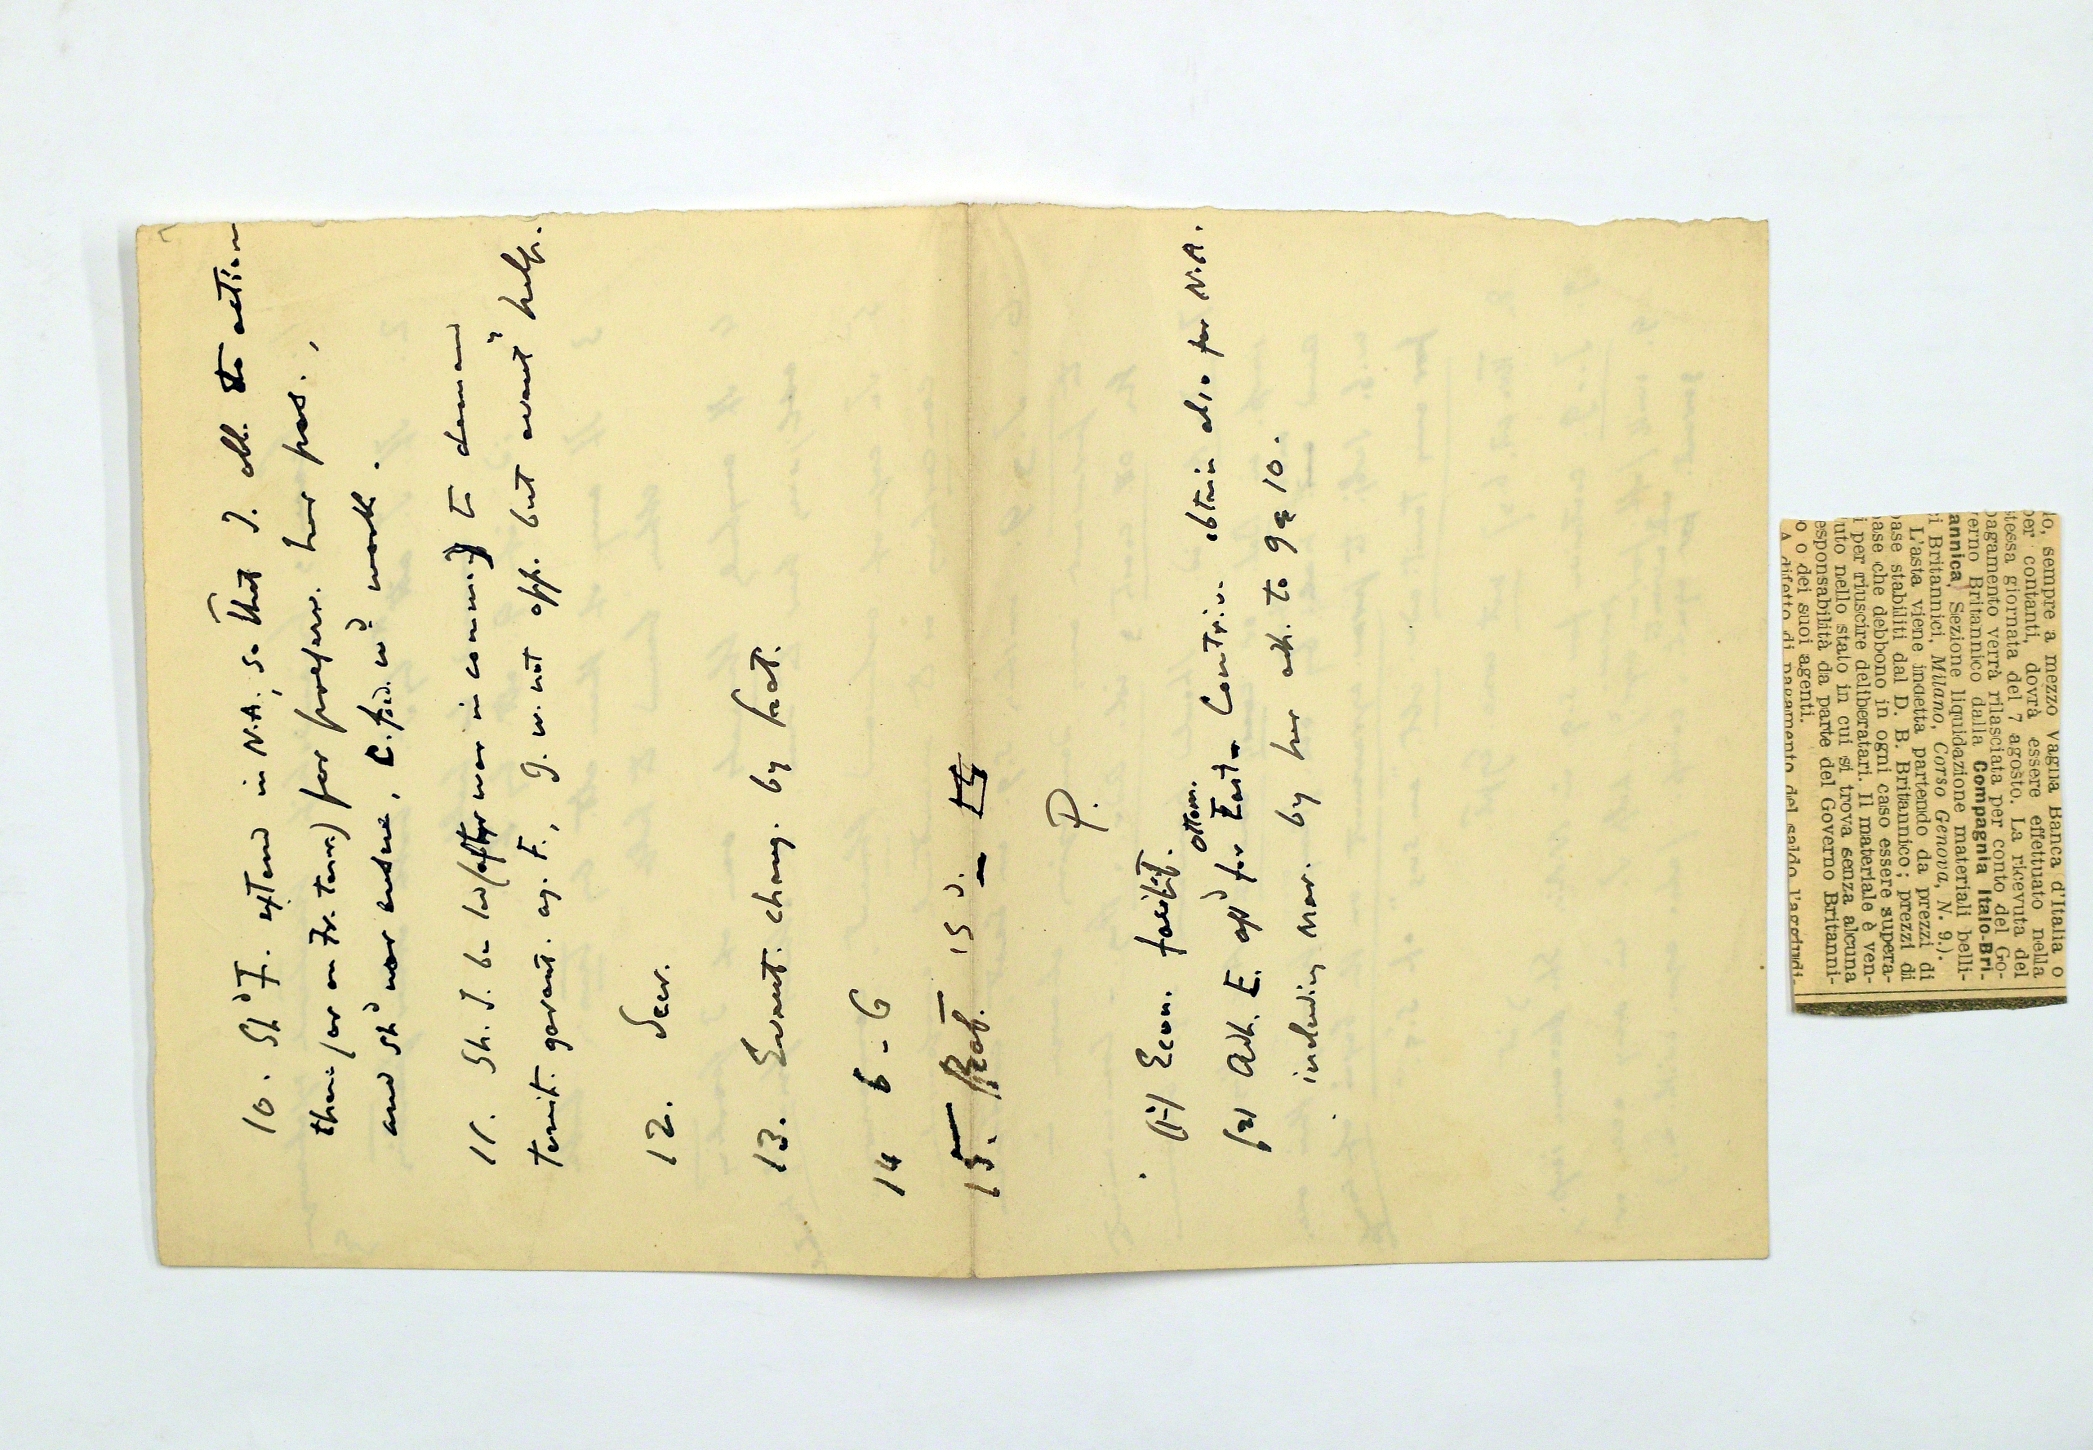 10. Shᵈ F. extend in N.A., so that I. obl. to action
there (or on Fr. terr.) for preserv. her pos.,
and shᵈ war ensue, C. foed. wᵈ work.
11. Sh. I. be led (after war in common) to demand
territ. garant. ag. F., G. w. not opp. but event.ʸ help.
12. Secr.
13. Event. chang. by prot.
14 6 - G
15. Prob. 15 J. -
P.
(1) Econ. facilit.
ottom.
(2) Adh. E. appᵈ for Eastn Countries obtain also for N.A.
including Mar. by her adh. to 9 & 10.
lo, sempre a mezzo vaglia Banca d'Italia o
per contanti, dovrà essere effettuato nella
stessa giornata del 7 agosto. La ricevuta del
pagamento verrà rilasciata per conto del Go-
erno Britannico dalla Compagnia Italo-Bri-
annica, Sezione liquidazione materiali belli-
i Britannici, Milano, Corso Genova, N. 9.).
L'asta viene indetta partendo da prezzi di
ase stabiliti dal D. B. Britannico; prezzi di
ase che debbono in ogni caso essere supera-
i per riuscire deliberatari. Il materiale è ven-
uto nello stato in cui si trova senza alcuna
esponsabilità da parte del Governo Britanni-
o o dei suoi agenti.
A difetto di pagamento del saldo l'aggiudi-